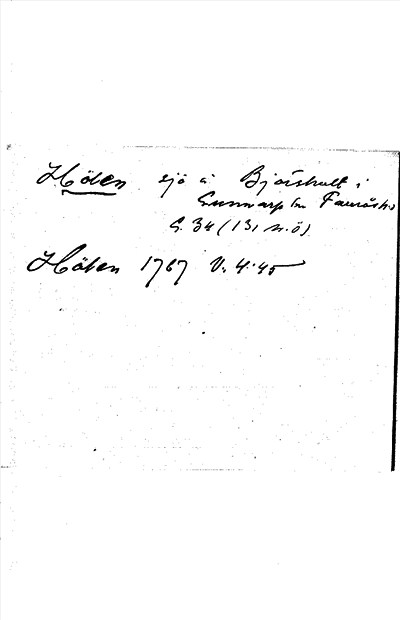 Höten sjö å Björshult i
Gunnarp sn Faurås hd
G. 34 (131 n.ö)
Höten 1767 V. 4:45